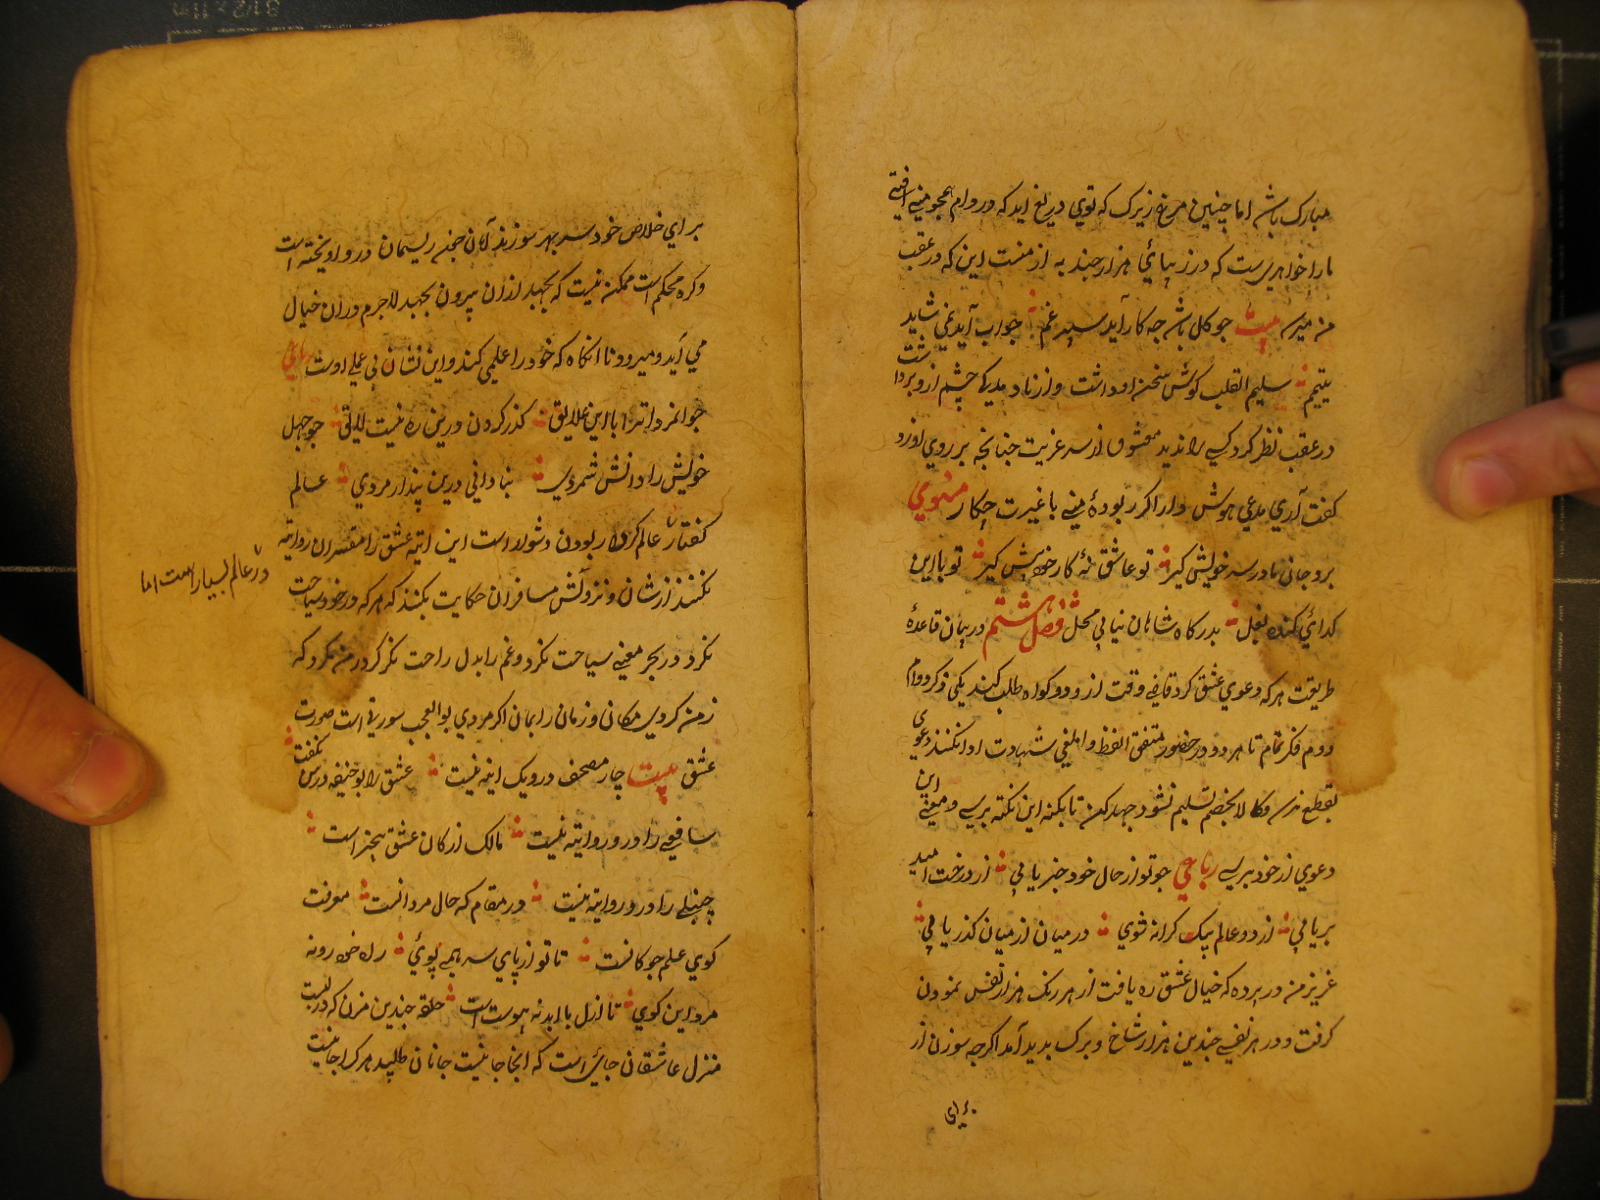 مبارک باش اما چنین مرغ زیرک که توی دریغ اید که در دام همچو منی افتی
مارا خواهریست که در زیبائی هزار چند به از منست این که در عقب
من میرسد بیت چو کل باشد چه کار آید سپرغم جواب آید نمی شاید
تیمم سلیم القلب کوش سخن او داشت و از ناد مدیکه چشم از و برداشت
در عقب نظر کرد کسی را ندید معشوق از سر غریت چنانچه بر روی او زد
کفت آری مدعی هوش دار اکر ربوده منی با غیرت چکار مثنوی
برو جانی مادر سر خویش کیر تو عاشق نهٔ کار خود پیش کیر تو با این
کدائی کنده بغل بدرکاه شاهان نیابی محل فصل هشتم در بیان قاعدهٔ
طریقت هر که دعوی عشق کرد قاضی وقت از و دو کواه طلب کند یکی ذکر دوام
دوم فکر تمام تا هر دو در حضور متفق الفظ و المعنی شهادت ادا نکنند دعوی
بقطع نرسد و کالا بخصم تسلیم نشود جهد کن تا بکنه این نکته برسی و معنی این
دعوی از خود بپرسی رباعی چو تو از حال خود خبر یابی از درخت امید
بر یابی از دو عالم بیک کرانه شوی در میان از میان کذر یابی
عزیز من در پرده که خیال عشق ره یافت از هر رنک هزار نقش نمودن
کرفت و در هر نفسی چندین هزار شاخ و برک پدید آمد اکرچه سوزن از
برای
برای خلاص خود سر بهر سوزند آنان چند ریسمان در و اویخته است
و کره محکم است ممکن نیست که بجهد از ان بیرون بجهد لاجرم در ان خیال
می آید و میرود تا انکاه که خود را علمی کند و این نشان بی عملی اوست رباعی
جوانمردا ترا با این علایق کذر کردن درین ره نیست لایق چو جهل
خویش را دانش شمردی بنادانی درین پندار مردی عالم
کفتار عالم کردار بودن دشوار است این ایتهٔ عشق را مفسران روایتهٔ
در عالم بسیار است اما
نکنند از نشان و نز و لش مسافران حکایت بکنند که هر که در خود سیاحت
نکرد و در بحر معنی سیاحت نکرد و غم را بدل راحت نکرد کرد من نکرد که
زمن کردی مکان و زمان را بمان اکر مردی بو العجب سورتی است صورت
عشق بیت چار مصحف درو یک ایته نیست عشق را بو حنیفه درس نکفت
شافعی را درو روایته نیست مالک از کان عشق بیخبر است
حنبلی را درو روایته نیست در مقام که حال مردانست معرفت
کوی علم چو کانست تا تو از پای سر همی پوئی راه خود رو نه
مرد این کوی تا ازل با ابد نه پیوست است حلقه چندین مزن که در بست
منزل عاشقان جائی است که انجا جا نیست جانان طلبید هر کرا جا نیست